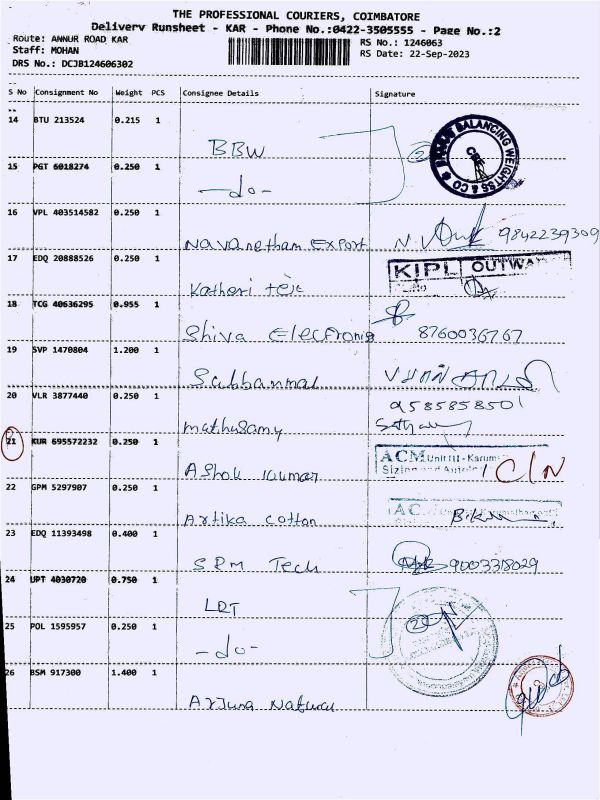 THE PROFESSIONAL COURIERS, COIMBATORE
Delivery Runsheet - KAR - Phone No.:0422-3505555 - Page No.:2
Route: ANNUR ROAD KAR
RS No.: 1246063
Staff: MOHAN
RS Date: 22-Sep-2023
DRS No.: DCJB124606302
S No Consignment No Weight PCS Consignee Details Signature
14 BTU 213524 0.215 1
BBW
2
BALANCING WEIGHTSS & CO
15 PGT 6018274 0.250 1
-do-
16 VPL 403514582 0.250 1
Navanetham Export N. 9842239309
17 EDQ 20888526 0.250 1
KIPL OUTWA
Katheri tex
18 TCG 40636295 0.955 1
Shiva Electronics 8760036767
19 SVP 1470804 1.200 1
Subbammal
20 VLR 3877440 0.250 1
9585858501
mathusamy
21 KUR 695572232 0.250 1
ACM Unit III - Karum
Ashok kumar C/N
22 GPM 5297907 0.250 1
AC
Artika cotton
23 EDQ 11393498 0.400 1
SRM Tech 9003318029
24 UPT 4030720 0.750 1
LRT
2
25 POL 1595957 0.250 1
-do-
26 BSM 917300 1.400 1
Arjuna Natural